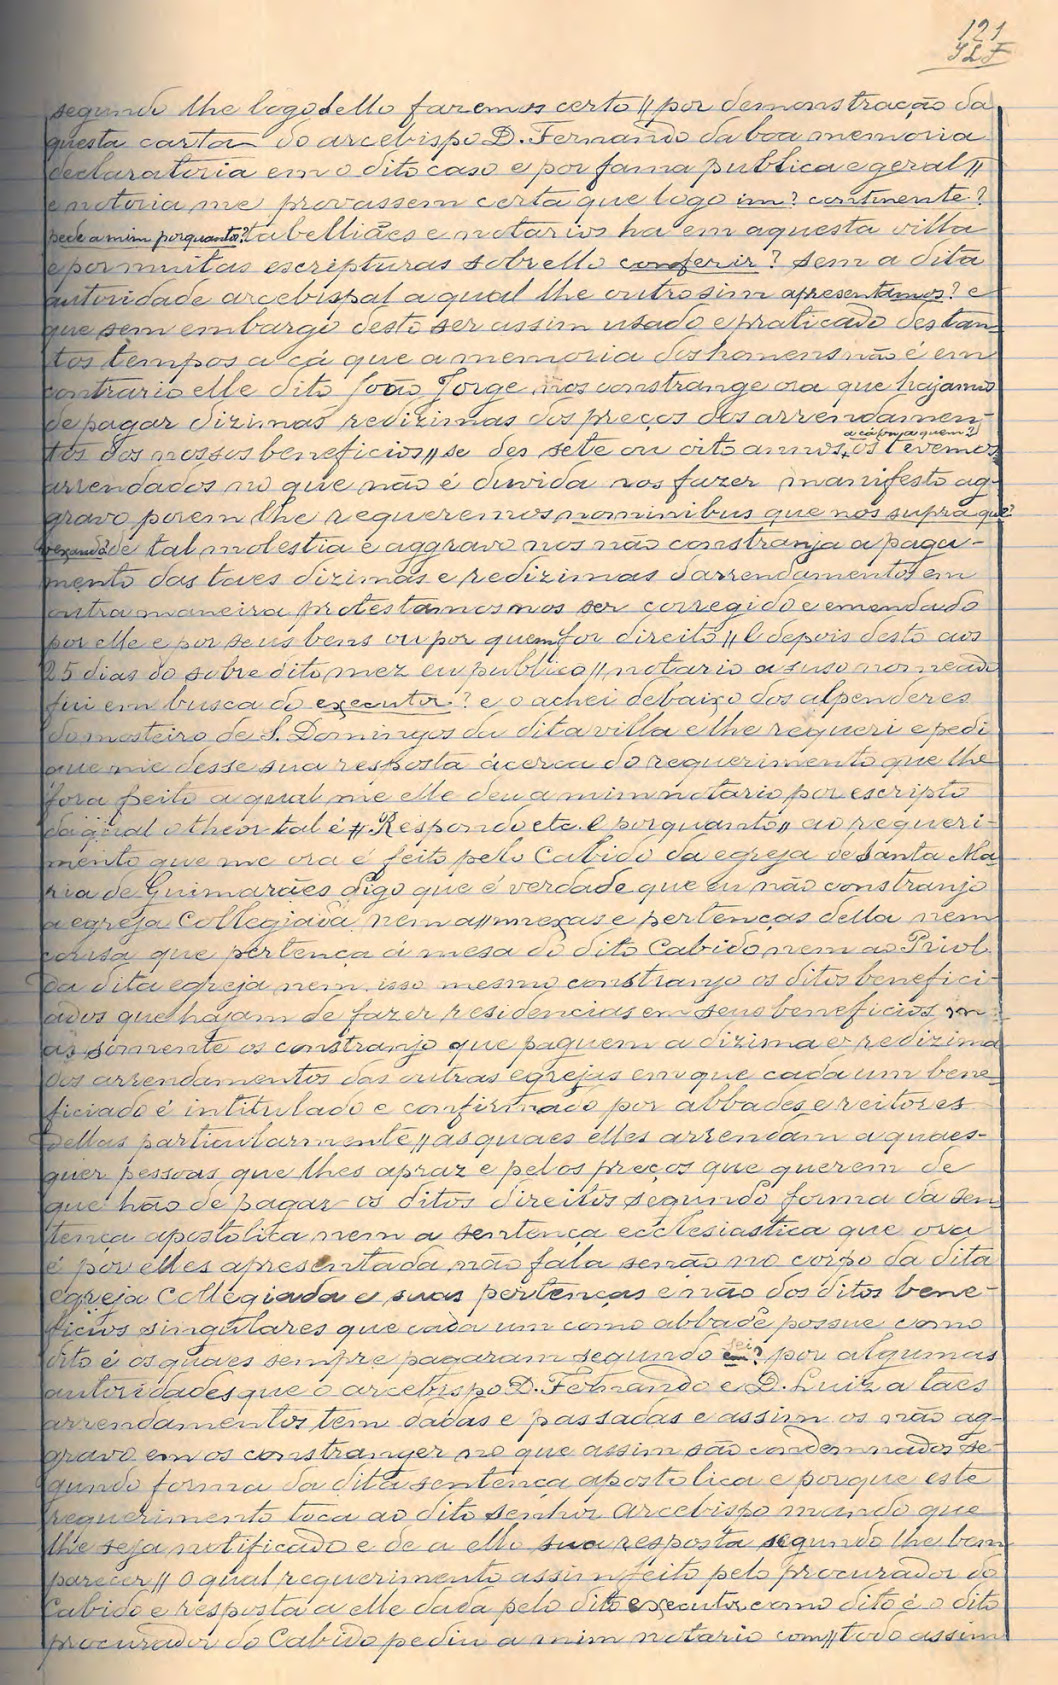 121
JLF
segundo lhe logo dello faremos certo // por demonstração da
questa carta do arcebispo D. Fernando da boa memoria
declaratoria em o dito caso e por fama publica e geral //
e notoria me provassem certa que logo im? continente?
pede a mim porquanto? tabelliães e notarios ha em aquesta villa
e por muitas escripturas sobrello conferir? sem a dita
autoridade arcebispal a qual lhe outrosim apresentamos? e
que sem embargo desto ser assim usado e praticado destan-
tos tempos a cá que a memoria dos homens não é em
contrario elle dito João Jorge nos constrange ora que hajamos
de pagar dizimas redizimas dos preços dos arrendamen-
tos dos nossos beneficios // se des sete ou oito annos os tevemos
arrendados no que não é duvida nos fazer manifesto ag-
gravo porem lhe requeremos nominibus que nos supra que?
vexando? de tal molestia e aggravo nos não constranja a paga-
mento das taes dizimas e redizimas darrendamentos em
outra maneira protestamos nos ser corregido e emendado
por elle e por seus bens ou por quem for direito // E depois desto aos
25 dias do sobredito mez eu publico // notario a suso nomeado
fui em busca do executor? e o achei debaixo dos alpenderes
do mosteiro de S. Domingos da dita villa e lhe requeri e pedi
que me desse sua resposta ácerca do requerimento que lhe
fora feito a qual me elle deu a mim notario por escripto
da qual o theor tal é // Respondo etc. E porquanto // ao requeri-
mento que me ora é feito pelo Cabido da egreja de Santa Ma-
ria de Guimarães digo que é verdade que eu não constranjo
a egreja Collegiada nem a // mexas e pertenças della nem
cousa que pertença á mesa do dito Cabido nem ao Priol
da dita egreja nem isso mesmo constranjo os ditos benefici-
ados que hajam de fazer residencias em seus beneficios, m-
as somente os constranjo que paguem a dizima e redizima
dos arrendamentos das outras egrejas em que cada um bene-
ficiado é intitulado e confirmado por abbades e reitores
dellas particularmente // as quaes elles arrendam a quaes-
quer pessoas que lhes apraz e pelos preços que querem de
que hão de pagar os ditos direitos segundo forma da sen-
tença apostolica nem a sentença ecclesiastica que ora
é por elles apresentada não fala senão no corpo da dita
egreja Collegiada e suas pertenças e não dos ditos bene-
ficios singulares que cada um como abbade possue como
dito é os quaes sempre pagaram segundo sei em? por algumas
autoridades que o arcebispo D. Fernando e D. Luiz a taes
arrendamentos tem dadas e passadas e assim os não ag-
gravo em os constranger no que assim são condemnados se-
gundo forma da dita sentença apostolica e porque este
requerimento toca ao dito senhor arcebispo mando que
lhe seja notificado e de a ello sua resposta segundo lhe bem
parecer // O qual requerimento assim feito pelo procurador do
Cabido e resposta a elle dada pelo dito executor como dito é o dito
procurador do Cabido pediu a mim notario com // todo assim